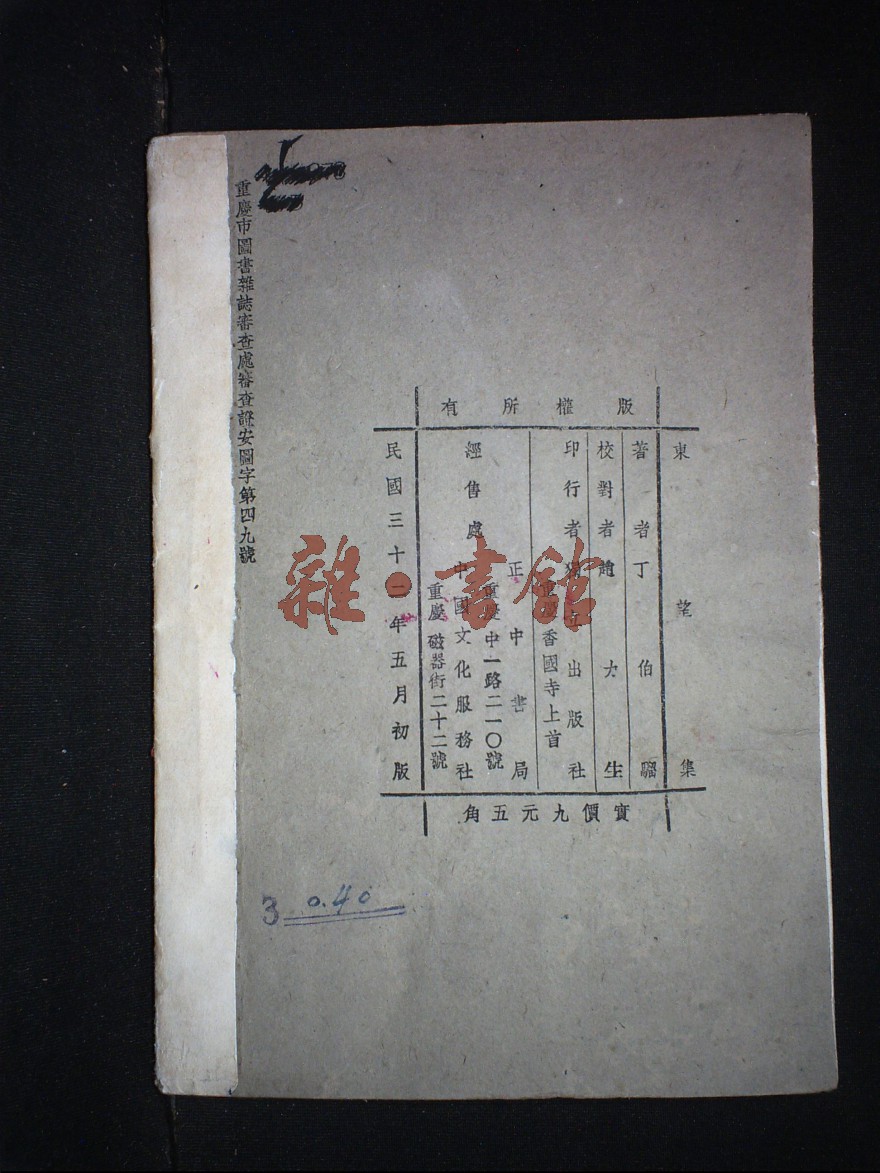 版權所有
東望集
著者丁伯騮
校對者趙大生
印行者獨立出版社
重慶香國寺上首
經售處
正中書局
重慶中一路二一〇號
中國文化服務社
重慶磁器街二十二號
民國三十二年五月初版
實價九元五角
重慶市圖書雜誌審查處審查證安圖字第四九號
3 0.40
雜·書館